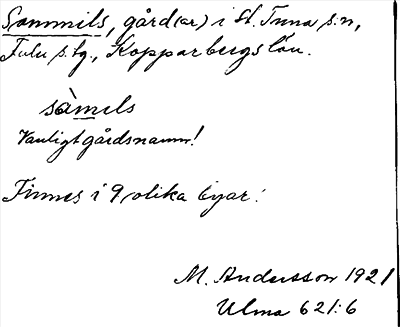 Sommils, gård(ar) i St. Tuna s:n,
Falu s. fg., Kopparbergs län.
sàmils
Vanligt gårdsnamn!
Finnes i 9 olika byar.
M. Andersson 1921
Ulma 621:6